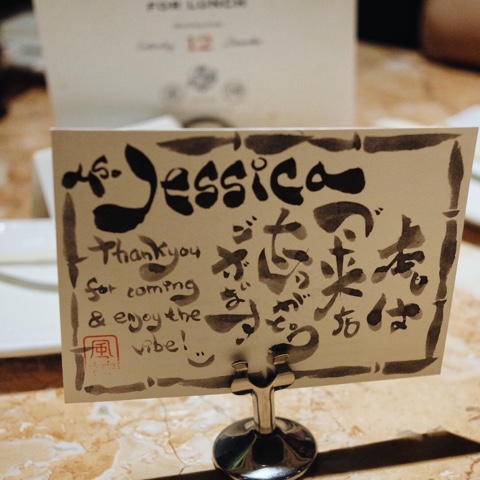 FOR LUNCH
12
Ms. Jessica
Thank you
for coming
& enjoy the
vibe!
本日は
ご来店
ありがとう
ございます
風